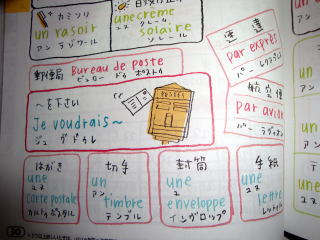 カミソリ
un rasoir
アン ラゾワール
une crème
ユヌ クレーム
solaire
ソレール
速達
par exprès
パー レクスプレ
郵便局 Bureau de poste
ビューロー ドゥ ポストゥ
航空便
par avion
パー ラヴィオン
～を下さい
Je voudrais～
ジュ ヴドゥレ
POSTES
はがき
une
ユヌ
carte postale
カルトゥ ポスタル
切手
un
アン
timbre
テンブル
封筒
une
ユヌ
enveloppe
インヴロップ
手紙
une
ユヌ
lettre
レットゥル
30